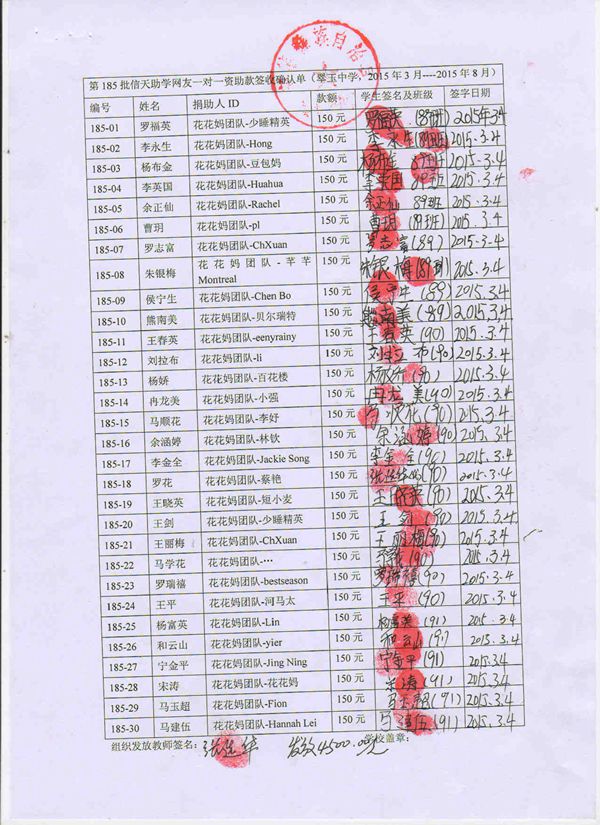 族自治
第 185 批信天助学网友一对一资助款签收确认单（翠玉中学，2015 年 3 月----2015 年 8 月）
编号 姓名 捐助人 ID 款额 学生签名及班级 签字日期
185-01 罗福英 花花妈团队-少睡精英 150 元 罗福英 (89班) 2015年3.4
185-02 李永生 花花妈团队-Hong 150 元 李永生(89班) 2015.3.4
185-03 杨布金 花花妈团队-豆包妈 150 元 杨布金 89班 2015.3.4
185-04 李英国 花花妈团队-Huahua 150 元 李英国 89班 2015.3.4
185-05 余正仙 花花妈团队-Rachel 150 元 余正仙 89班 2015.3.4
185-06 曹玥 花花妈团队-pl 150 元 曹玥 (89班) 2015.3.4
185-07 罗志富 花花妈团队-ChXuan 150 元 罗志富(89) 2015.3.4
185-08 朱银梅 花花妈团队-芊芊 150 元 朱银梅(89班) 2015.3.4
Montreal
185-09 侯宁生 花花妈团队-Chen Bo 150 元 侯宁生(89) 2015.3.4
185-10 熊南美 花花妈团队-贝尔瑞特 150 元 熊南美(89) 2015.3.4
185-11 王春英 花花妈团队-eenyrainy 150 元 王春英(90) 2015.3.4
185-12 刘拉布 花花妈团队-li 150 元 刘拉布(90) 2015.3.4
185-13 杨娇 花花妈团队-百花楼 150 元 杨娇(90) 2015.3.4
185-14 冉龙美 花花妈团队-小强 150 元 冉龙美(90) 2015.3.4
185-15 马顺花 花花妈团队-李好 150 元 马顺花(90) 2015.3.4
185-16 余涵婷 花花妈团队-林钦 150 元 余涵婷(90) 2015.3.4
185-17 李金全 花花妈团队-Jackie Song 150 元 李金全(90) 2015.3.4
185-18 罗花 花花妈团队-蔡艳 150 元 (90) 2015.3.4
185-19 王晓英 花花妈团队-短小麦 150 元 王晓英(90) 2015.3.4
185-20 王剑 花花妈团队-少睡精英 150 元 王剑(90) 2015.3.4
185-21 王丽梅 花花妈团队-ChXuan 150 元 王丽梅(90) 2015.3.4
185-22 马学花 花花妈团队-··· 150 元 (90) 2015.3.4
185-23 罗瑞禧 花花妈团队-bestseason 150 元 罗瑞禧(90) 2015.3.4
185-24 王平 花花妈团队-河马太 150 元 王平(90) 2015.3.4
185-25 杨富英 花花妈团队-Lin 150 元 杨富英(91) 2015.3.4
185-26 和云山 花花妈团队-yier 150 元 和云山(91) 2015.3.4
185-27 宁金平 花花妈团队-Jing Ning 150 元 宁金平(91) 2015.3.4
185-28 宋涛 花花妈团队-花花妈 150 元 宋涛(91) 2015.3.4
185-29 马玉超 花花妈团队-Fion 150 元 马玉超(91) 2015.3.4
185-30 马建伍 花花妈团队-Hannah Lei 150 元 马建伍(91) 2015.3.4
组织发放教师签名： 发放4500.00元 学校盖章：